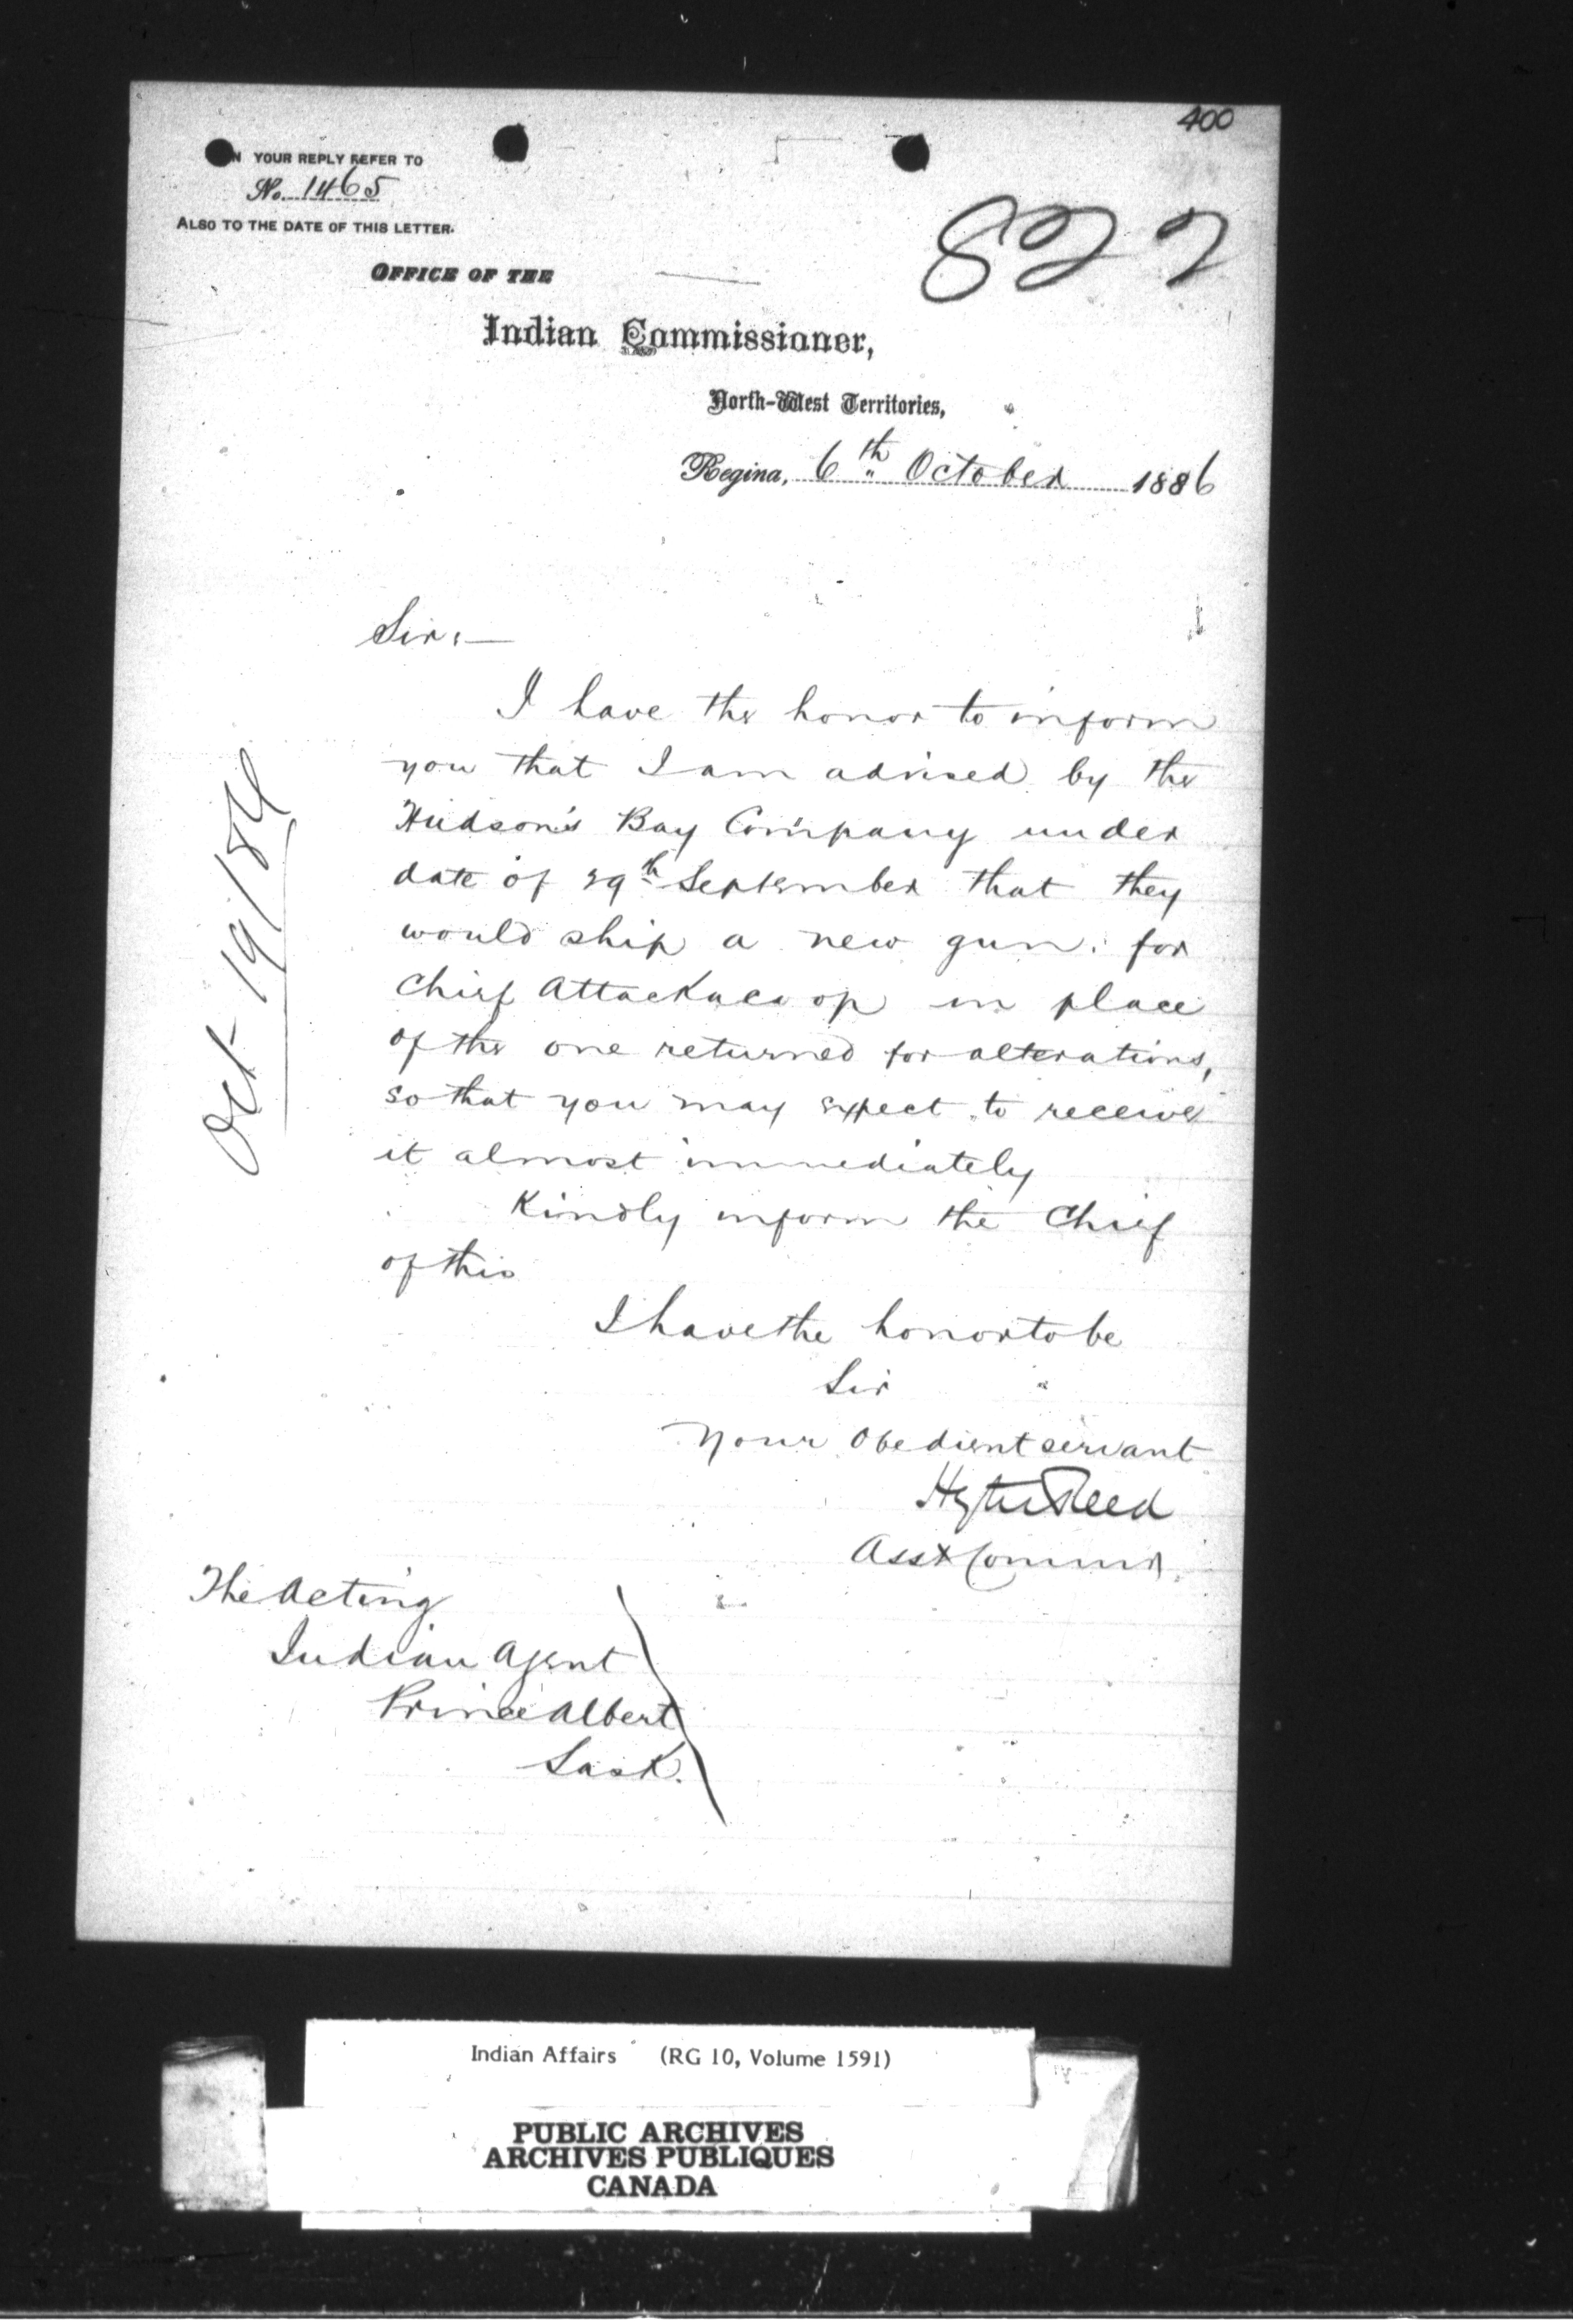 400
IN YOUR REPLY REFER TO
No. 1465
ALSO TO THE DATE OF THIS LETTER.
822
OFFICE OF THE
Indian Commissioner,
North-West Territories,
Regina, 6th October 1886
Sir:—
I have the honor to inform
you that I am advised by the
Hudson's Bay Company under
date of 29th September that they
would ship a new gun for
Chief Attackacoop in place
of the one returned for alterations,
so that you may expect to receive
it almost immediately
Kindly inform the Chief
of this
I have the honor to be
Sir
Your Obedient servant
Hayter Reed
Asst Commr.
The Acting
Indian Agent
Prince Albert
Sask.
Oct 19/86
Indian Affairs (RG 10, Volume 1591)
PUBLIC ARCHIVES
ARCHIVES PUBLIQUES
CANADA